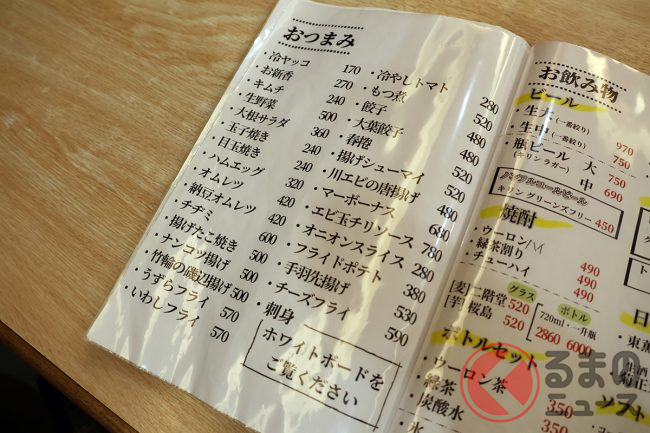 おつまみ
・冷ヤッコ 170
・お新香 270
・キムチ 240
・生野菜 500
・大根サラダ 360
・玉子焼き 240
・目玉焼き 240
・ハムエッグ 320
・オムレツ 420
・納豆オムレツ 420
・チヂミ 600
・揚げたこ焼き 500
・ナンコツ揚げ 500
・竹輪の磯辺揚げ 500
・うずらフライ 570
・いわしフライ 570
・冷やしトマト 280
・もつ煮 520
・餃子 480
・大葉餃子 520
・春捲 480
・揚げシューマイ 480
・川エビの唐揚げ 520
・マーボーナス 680
・エビ玉チリソース 780
・オニオンスライス 280
・フライドポテト 380
・手羽先揚げ 530
・チーズフライ 590
・刺身
ホワイトボードを
ご覧ください
お飲み物
ビール
・生大(一番絞り) 970
・生中(一番絞り) 750
・瓶ビール 大 750
(キリンラガー) 中 690
ノンアルコールビール
キリン グリーンズフリー 450
焼酎
・ウーロンハイ 490
・緑茶割り 490
・チューハイ 490
グラス ボトル
720ml・一升瓶
[麦]二階堂 520 2860 6000
[芋]桜島 520
ボトルセット
・ウーロン茶 350
・緑茶 350
・炭酸水
ソフト
くるまの
ニュース